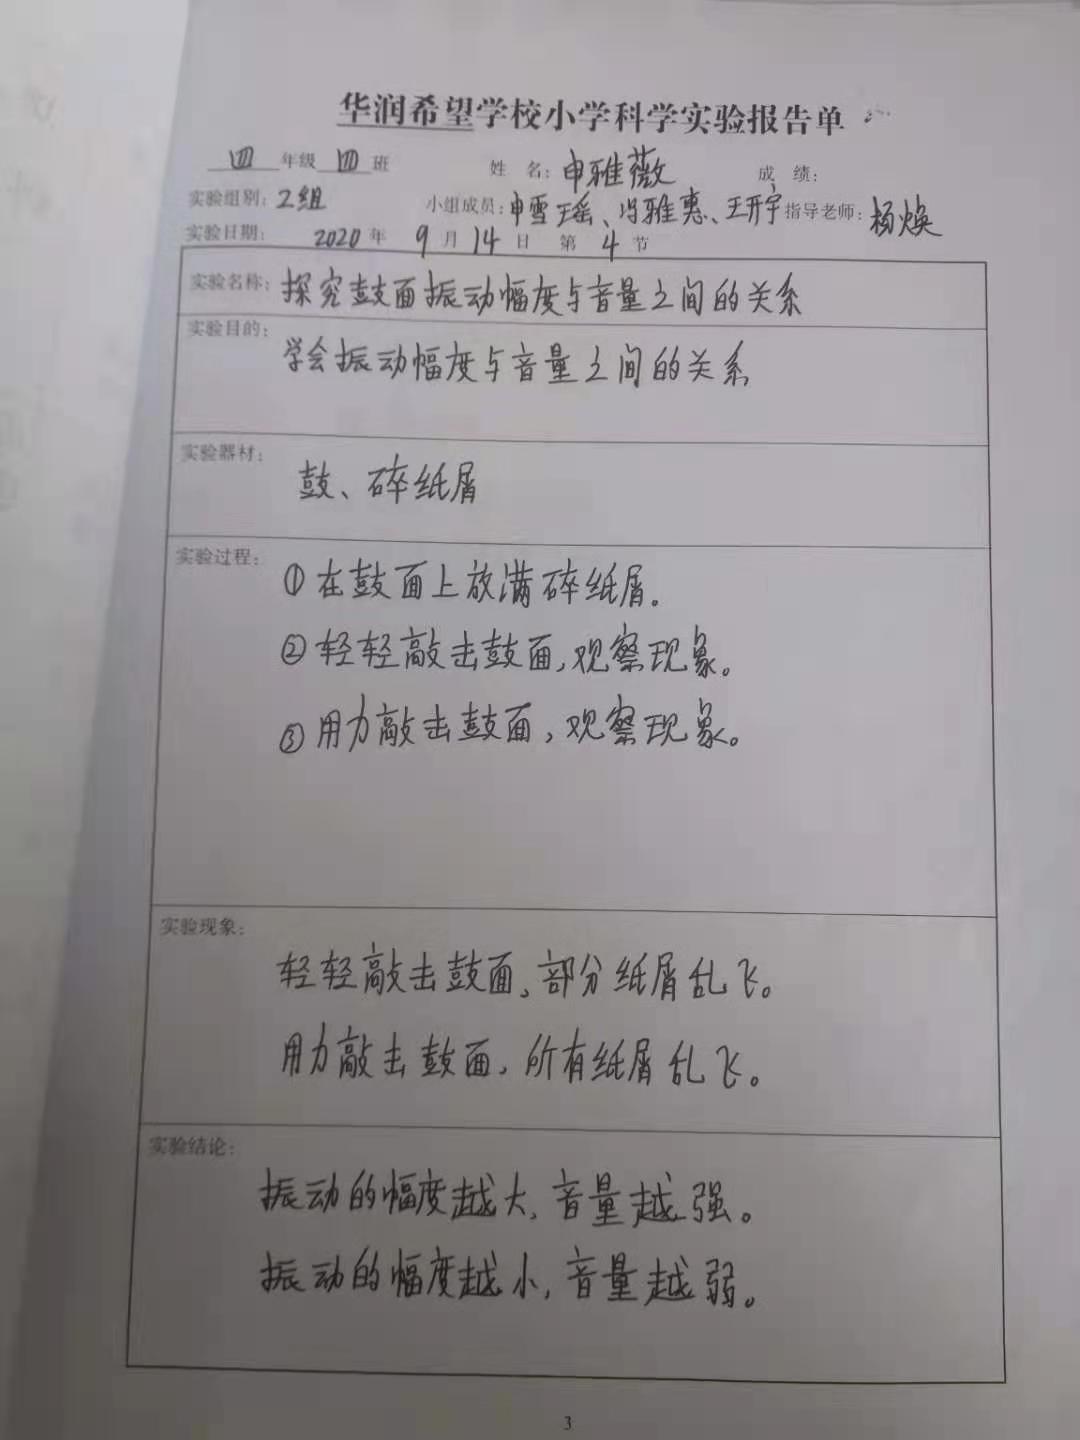 华润希望学校小学科学实验报告单
四 年级 四 班 姓 名: 申雅薇 成 绩:
实验组别: 2组 小组成员: 申雪瑶、冯雅惠、王开宇 指导老师: 杨焕
实验日期: 2020 年 9 月 14 日 第 4 节
实验名称: 探究鼓面振动幅度与音量之间的关系
实验目的:
学会振动幅度与音量之间的关系
实验器材:
鼓、碎纸屑
实验过程:
①在鼓面上放满碎纸屑。
②轻轻敲击鼓面,观察现象。
③用力敲击鼓面,观察现象。
实验现象:
轻轻敲击鼓面,部分纸屑乱飞。
用力敲击鼓面,所有纸屑乱飞。
实验结论:
振动的幅度越大,音量越强。
振动的幅度越小,音量越弱。
3